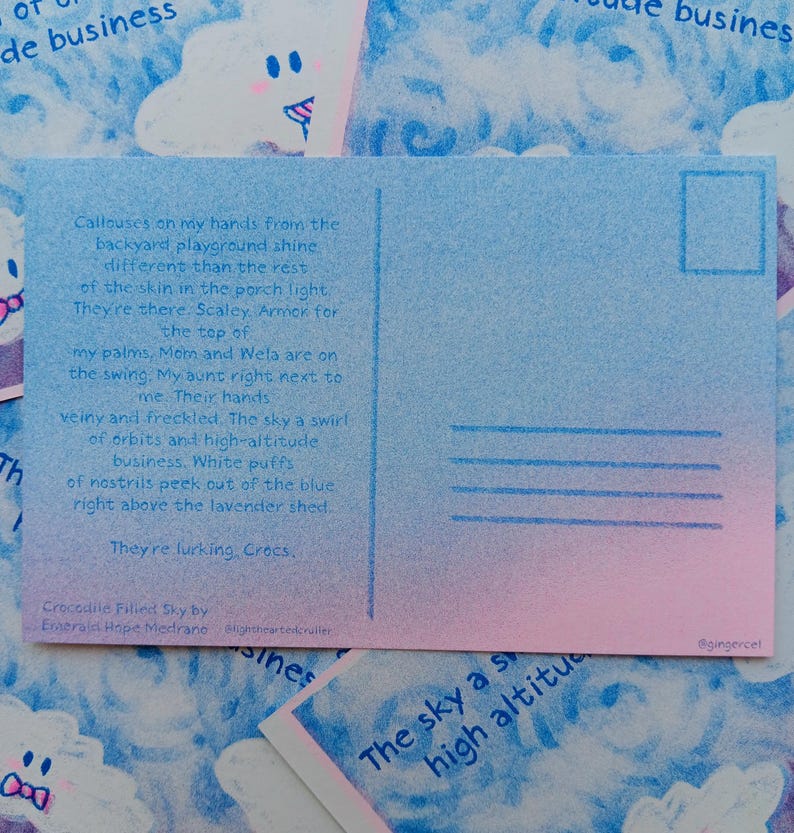 of or
de business
tude business
Callouses on my hands from the
backyard playground shine
different than the rest
of the skin in the porch light.
They're there. Scaley. Armor for
the top of
my palms. Mom and Wela are on
the swing. My aunt right next to
me. Their hands
veiny and freckled. The sky a swirl
of orbits and high-altitude
business. White puffs
of nostrils peek out of the blue
right above the lavender shed.
They're lurking. Crocs.
Crocodile Filled Sky by
Emerald Hope Medrano @lightheartedcruller
@gingercel
Th
siness
The sky a sw
high altitud